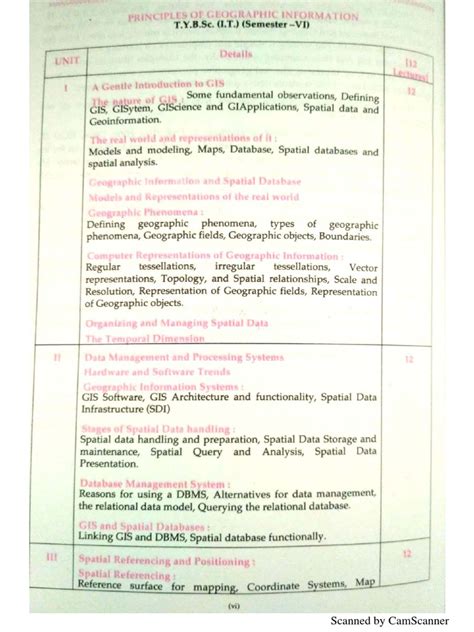 PRINCIPLES OF GEOGRAPHIC INFORMATION
T.Y.B.Sc. (I.T.) (Semester –VI)
UNIT
Details
[12
Lectures]
I
A Gentle Introduction to GIS
12
The nature of GIS : Some fundamental observations, Defining
GIS, GISytem, GIScience and GIApplications, Spatial data and
Geoinformation.
The real world and representations of it :
Models and modeling, Maps, Database, Spatial databases and
spatial analysis.
Geographic Information and Spatial Database
Models and Representations of the real world
Geographic Phenomena :
Defining geographic phenomena, types of geographic
phenomena, Geographic fields, Geographic objects, Boundaries.
Computer Representations of Geographic Information :
Regular tessellations, irregular tessellations, Vector
representations, Topology, and Spatial relationships, Scale and
Resolution, Representation of Geographic fields, Representation
of Geographic objects.
Organizing and Managing Spatial Data
The Temporal Dimension
II
Data Management and Processing Systems
12
Hardware and Software Trends
Geographic Information Systems :
GIS Software, GIS Architecture and functionality, Spatial Data
Infrastructure (SDI)
Stages of Spatial Data handling :
Spatial data handling and preparation, Spatial Data Storage and
maintenance, Spatial Query and Analysis, Spatial Data
Presentation.
Database Management System :
Reasons for using a DBMS, Alternatives for data management,
the relational data model, Querying the relational database.
GIS and Spatial Databases :
Linking GIS and DBMS, Spatial database functionally.
III
Spatial Referencing and Positioning :
12
Spatial Referencing :
Reference surface for mapping, Coordinate Systems, Map
(vi)
Scanned by CamScanner